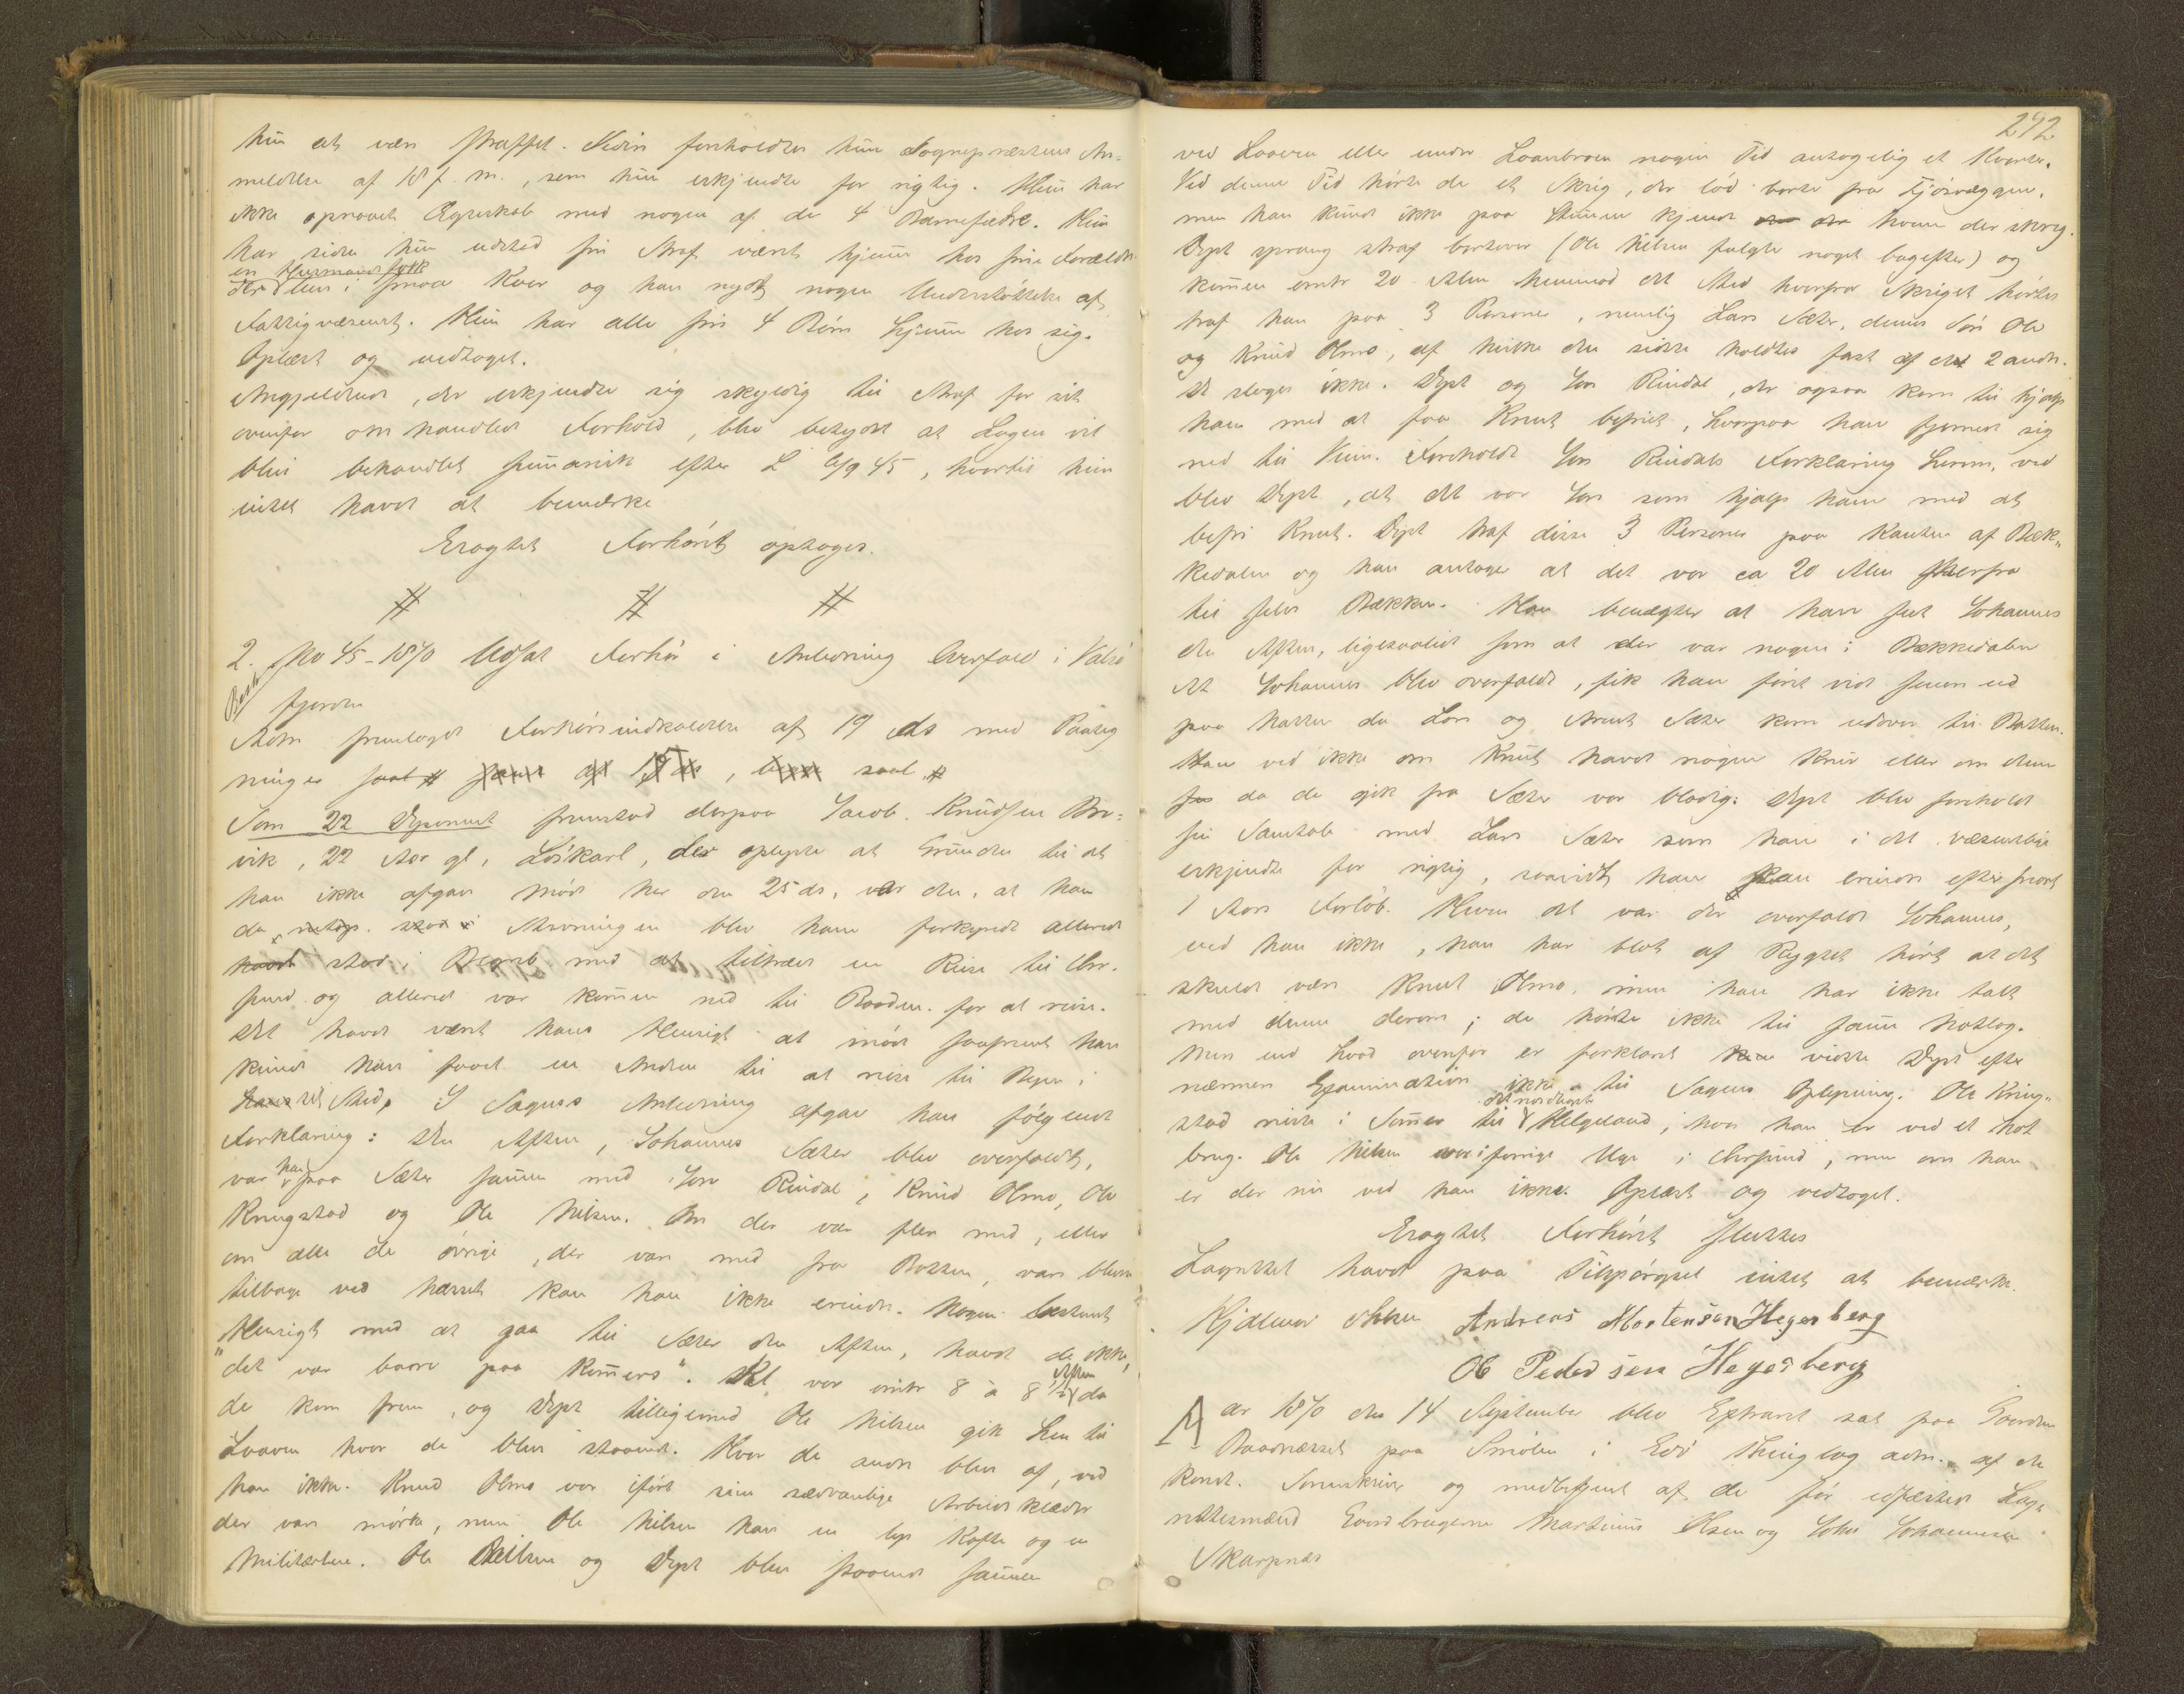 hun at være straffet. Videre foreholdtes hun Sogneprestens An-
meldelse af 18 f. m., som hun erkjendte for rigtig. Hun har
ikke opnaaet Ægteskab med nogen af de 4 Barnefædre. Hun
har siden hun udstod sin Straf været hjemme hos sine Forældre
en Husmandsfolk
der leve i smaa Kaar og har nydt nogen Understøttelse af
Fattigvæsenet. Hun har alle sine 4 Børn hjemme hos sig.
Oplæst og vedtaget.
Angjeldende, der erkjendte sig skyldig til Straf for sit
ovenfor omhandlede Forhold, blev betydet at Sagen vil
blive behandlet summarisk efter L 6/9 45, hvortil hun
intet havde at bemærke
Eragtet Forhøret optages.
# # #
2. No 45-1870 Udsat Forhør i Anledning Overfald i Valsø
fjorden
Retten fremlagde Forhørsindkaldelse af 19 ds med Paateg
ninger saal
Som 22 Deponent fremstod derpaa Jacob Knudsen Bru-
vik, 22 Aar gl, Løskarl, der oplyste at Grunden til at
han ikke afgav Møde her den 25 ds, var den, at han
da Stevningen blev ham forkyndt allerede
stod i Begreb med at tiltræde en Reise til Chr.
sund og allerede var kommen ned til Baaden for at reise.
Det havde været hans Hensigt at møde saafremt han
kunde have faaet en Anden til at reise til Byen i
sit Sted. I Sagens Anledning afgav han følgende
Forklaring: Den Aften, Johannes Sæter blev overfaldt,
var han paa Sæter sammen med Jon Rindal, Knud Olmo, Ole
Kringstad og Ole Nilsen. Om der var flere med, eller
om alle de øvrige, der var med fra Botten, vare blevne
tilbage ved Næsset kan han ikke erindre. Nogen bestemt
Hensigt med at gaa til Sæter den Aften, havde de ikke,
"det var bare paa Kommers". Kl. var omtr 8 à 8 1/2 Aften da
de kom frem, og Dept tilligemed Ole Nilsen gik hen til
Laaven hvor de blev staaende. Hvor de andre blev af, ved
han ikke. Knud Olmo var iført sine sædvanlige Arbeidsklæder
der vare mørke, men Ole Nilsen har en lys Kofte og en
Militærlue. Ole Nilsen og Dept blev staaende sammen
242
ved Laaven eller under Laavebroen nogen Tid antagelig et Kvarter.
Ved denne Tid hørte de et Skrig, der lød borte fra Fjøsvæggen.
men han kunde ikke paa Stemmen kjende hvem der skreg.
Dept sprang straf bortover (Ole Nilsen fulgte noget bagefter) og
kommen omtr 20 Alen henimod det Sted hvorfra Skriget hørtes
traf han paa 3 Personer, nemlig Lars Sæter, dennes Søn Ole
og Knud Olmo, af hvilke den sidste holdtes fast af de 2 andre.
De sloges ikke. Dept og Jon Rindal, der ogsaa kom til hjalp
ham med at faa Knut befriet, hvorpaa han fjernede sig
ned til Veien. Foreholdt Jon Rindals Forklaring herom, ved
blev Dept, at det var Jon som hjalp ham med at
befri Knut. Dept traf disse 3 Personer paa Kanten af Bæk-
kedalen og han antager at det var ca 20 Alen herfra
til selve Bækken. Han benægter at have seet Johannes
den Aften, ligesaalidt som at der var nogen i Bækkedalen
At Johannes blev overfaldt, fik han først vide senere ud
paa Natten da Lars og Arent Sæter kom udover til Botten.
Han ved ikke om Knut havde nogen Kniv eller om denne
da de gik fra Sæter var blodig. Dept blev foreholdt
sin Samtale med Lars Sæter som han i det væsentlige
erkjendte for rigtig, saavidt han kan erindre efter snart
1 Aars Forløb. Hvem det var der overfaldt Johannes,
ved han ikke, han har blot af Rygtet hørt at det
skulde være Knut Olmo, men han har ikke talt
med denne derom; de hørte ikke til samme Notlag.
Mere end hvad ovenfor er forklaret vidste Dept efter
nærmere Examination ikke til Sagens Oplysning. Ole Kring-
stad reiste i Sommer til det nordligste Helgeland, hvor han er ved et Not
brug. Ole Nilsen var i forrige Uge i Chrsund, men om han
er der nu ved han ikke. Oplæst og vedtaget.
Eragtet Forhøret sluttes
Lagrettet havde paa Tilspørgsel intet at bemærke.
Andreas Mortensen Hegerberg
Ole Pedersen Hegerberg
Aar 1870 den 14 September blev Extraret sat paa Gaarden
paa Smølen i Edø Thinglag adm. af den
konst. Sorenskriver og medbetjent af de før edfæstede Lag-
rettesmænd Gaardbrugerne Martinus Olsen og John Johannesen
Skarpnes